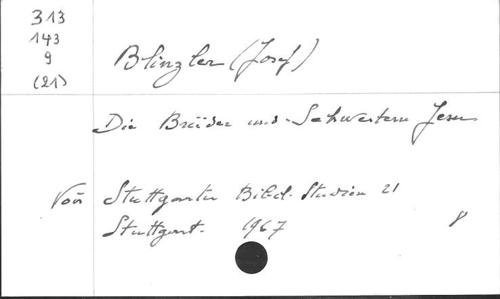 313
143
9
(21)
Blinzler (Josef)
Die Brüder und Schwestern Jesu
Voir Stuttgarter Bibel-Studien 21
Stuttgart. 1967
8